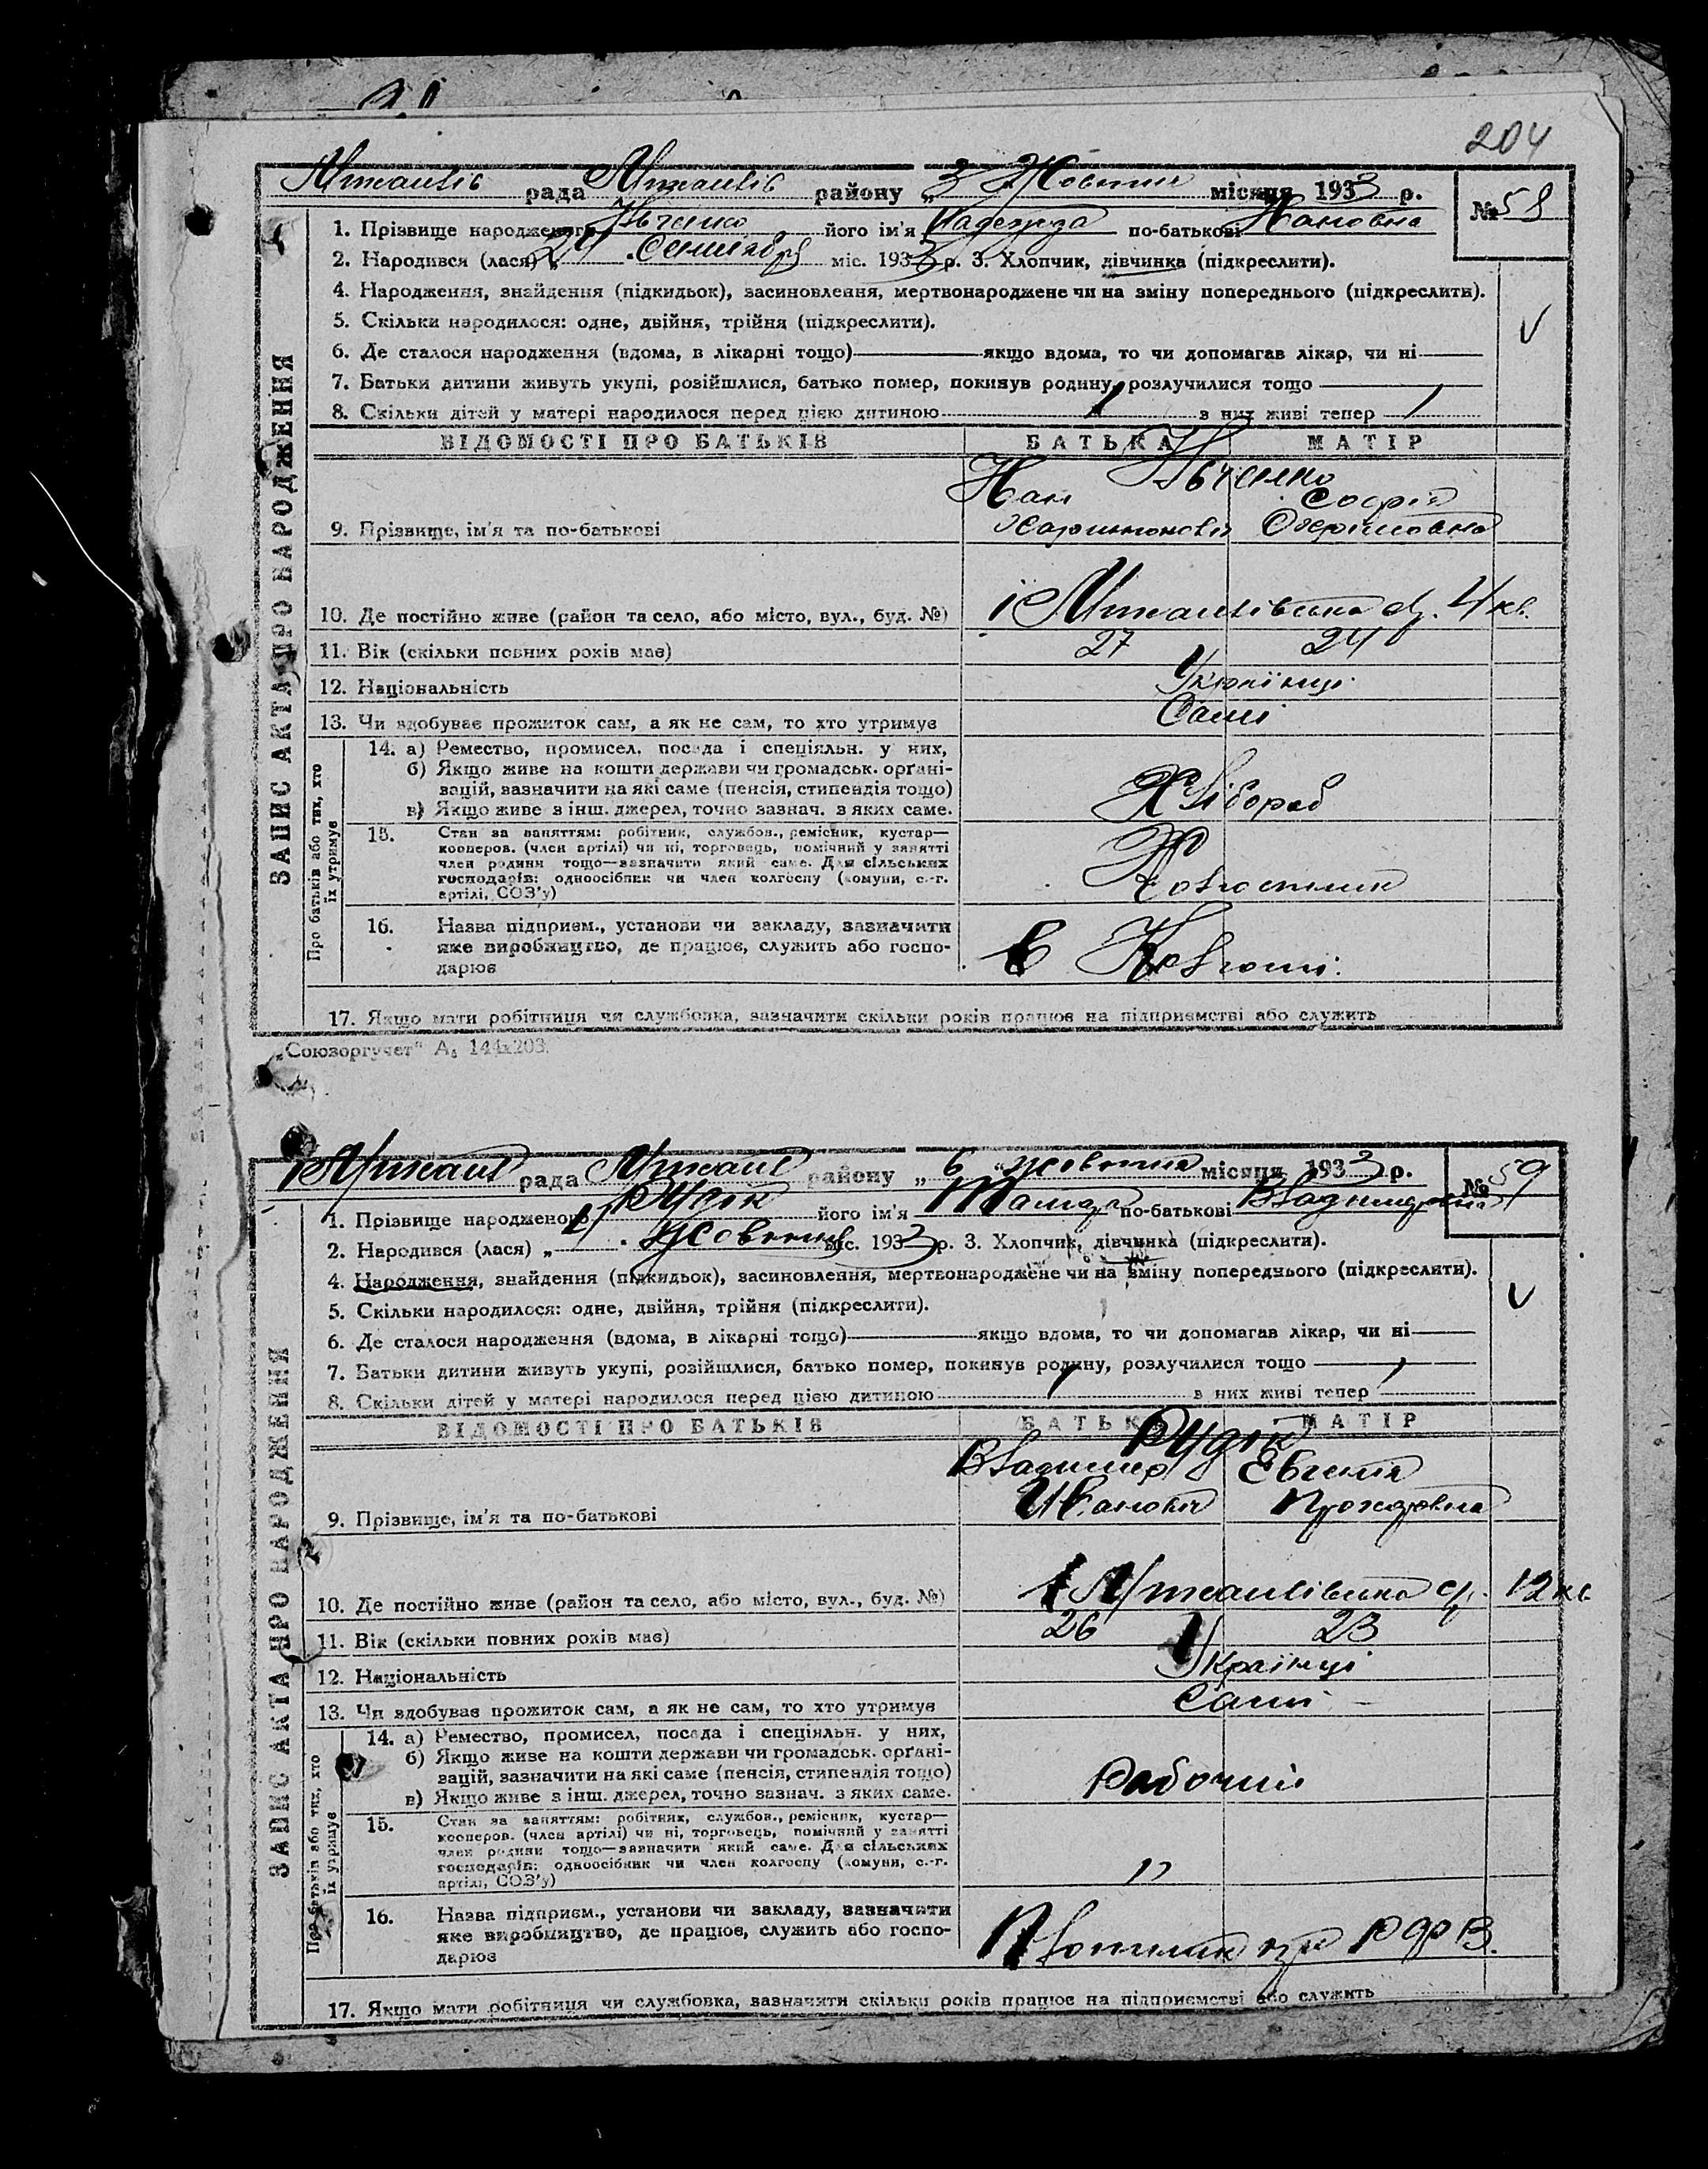 204
рада району „3 Жовтня місяця 1933 р.
№ 58
1. Прізвище народженого його ім'я Надежда по-батькові
2. Народився (лася) „ міс. 1933 р. 3. Хлопчик, дівчинка (підкреслити).
4. Народження, знайдення (підкидьок), засиновлення, мертвонароджене чи на зміну попереднього (підкреслити).
5. Скільки народилося: одне, двійня, трійня (підкреслити).
6. Де сталося народження (вдома, в лікарні тощо) якщо вдома, то чи допомагав лікар, чи ні
7. Батьки дитини живуть укупі, розійшлися, батько помер, покинув родину, розлучилися тощо
8. Скільки дітей у матері народилося перед цією дитиною в них живі тепер
ЗАПИС АКТА ПРО НАРОДЖЕННЯ
ВІДОМОСТІ ПРО БАТЬКІВ БАТЬКА МАТІР
Софія
9. Прізвище, ім'я та по-батькові
10. Де постійно живе (район та село, або місто, вул., буд. №) 4 кв.
11. Вік (скільки повних років має) 27 24
12. Національність Українці
13. Чи здобуває прожиток сам, а як не сам, то хто утримує Самі
Про батьків або тих, хто
їх утримує
14. а) Ремество, промисел, посада і спеціяльн. у них,
б) Якщо живе на кошти держави чи громадськ. орґані-
зацій, зазначити на які саме (пенсія, стипендія тощо)
в) Якщо живе з інш. джерел, точно зазнач. з яких саме.
Хлібороб
15. Стан за заняттям: робітник, службов., ремісник, кустар—
кооперов. (член артілі) чи ні, торговець, помічний у занятті
член родини тощо—зазначити який саме. Для сільських
господарів: одноосібник чи член колгоспу (комуни, с.-г.
артілі, СОЗ'у)
Колгоспник
16. Назва підприєм., установи чи закладу, зазначити
яке виробництво, де працює, служить або госпо-
дарює
в Колгоспі
17. Якщо мати робітниця чи службовка, зазначити скільки років працює на підприємстві або служить
„Союзоргучет" А₅ 144х203.
рада району „6" жовтня місяця 1933 р.
№ 59
1. Прізвище народженого Рудік його ім'я Тамара по-батькові
2. Народився (лася) „ Жовтня міс. 1933 р. 3. Хлопчик, дівчинка (підкреслити).
4. Народження, знайдення (підкидьок), засиновлення, мертвонароджене чи на зміну попереднього (підкреслити).
5. Скільки народилося: одне, двійня, трійня (підкреслити).
6. Де сталося народження (вдома, в лікарні тощо) якщо вдома, то чи допомагав лікар, чи ні
7. Батьки дитини живуть укупі, розійшлися, батько помер, покинув родину, розлучилися тощо
8. Скільки дітей у матері народилося перед цією дитиною в них живі тепер
ЗАПИС АКТА ПРО НАРОДЖЕННЯ
ВІДОМОСТІ ПРО БАТЬКІВ БАТЬКА МАТІР
Рудік
Владимер Евгения
9. Прізвище, ім'я та по-батькові Иванович
10. Де постійно живе (район та село, або місто, вул., буд. №) 12 кв
11. Вік (скільки повних років має) 26 23
12. Національність Українці
13. Чи здобуває прожиток сам, а як не сам, то хто утримує Самі
Про батьків або тих, хто
їх утримує
14. а) Ремество, промисел, посада і спеціяльн. у них,
б) Якщо живе на кошти держави чи громадськ. орґані-
зацій, зазначити на які саме (пенсія, стипендія тощо)
в) Якщо живе з інш. джерел, точно зазнач. з яких саме.
Рабочий
15. Стан за заняттям: робітник, службов., ремісник, кустар—
кооперов. (член артілі) чи ні, торговець, помічний у занятті
член родини тощо—зазначити який саме. Для сільських
господарів: одноосібник чи член колгоспу (комуни, с.-г.
артілі, СОЗ'у)
"
16. Назва підприєм., установи чи закладу, зазначити
яке виробництво, де працює, служить або госпо-
дарює
17. Якщо мати робітниця чи службовка, зазначити скільки років працює на підприємстві або служить